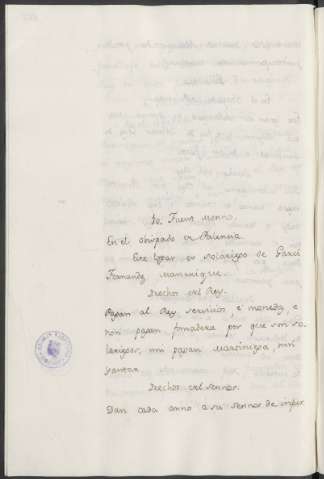 En el obispado de Palencia
Este logar es solariego de Garci
Fernandez Manrique.
Derechos del Rey.
Pagan al Rey servicios, e moneda, e
non pagan fonsadera por que son so
lariegos, nin pagan martiniega, nin
yantar
Derechos del sennor.
Dan cada anno a su sennor de